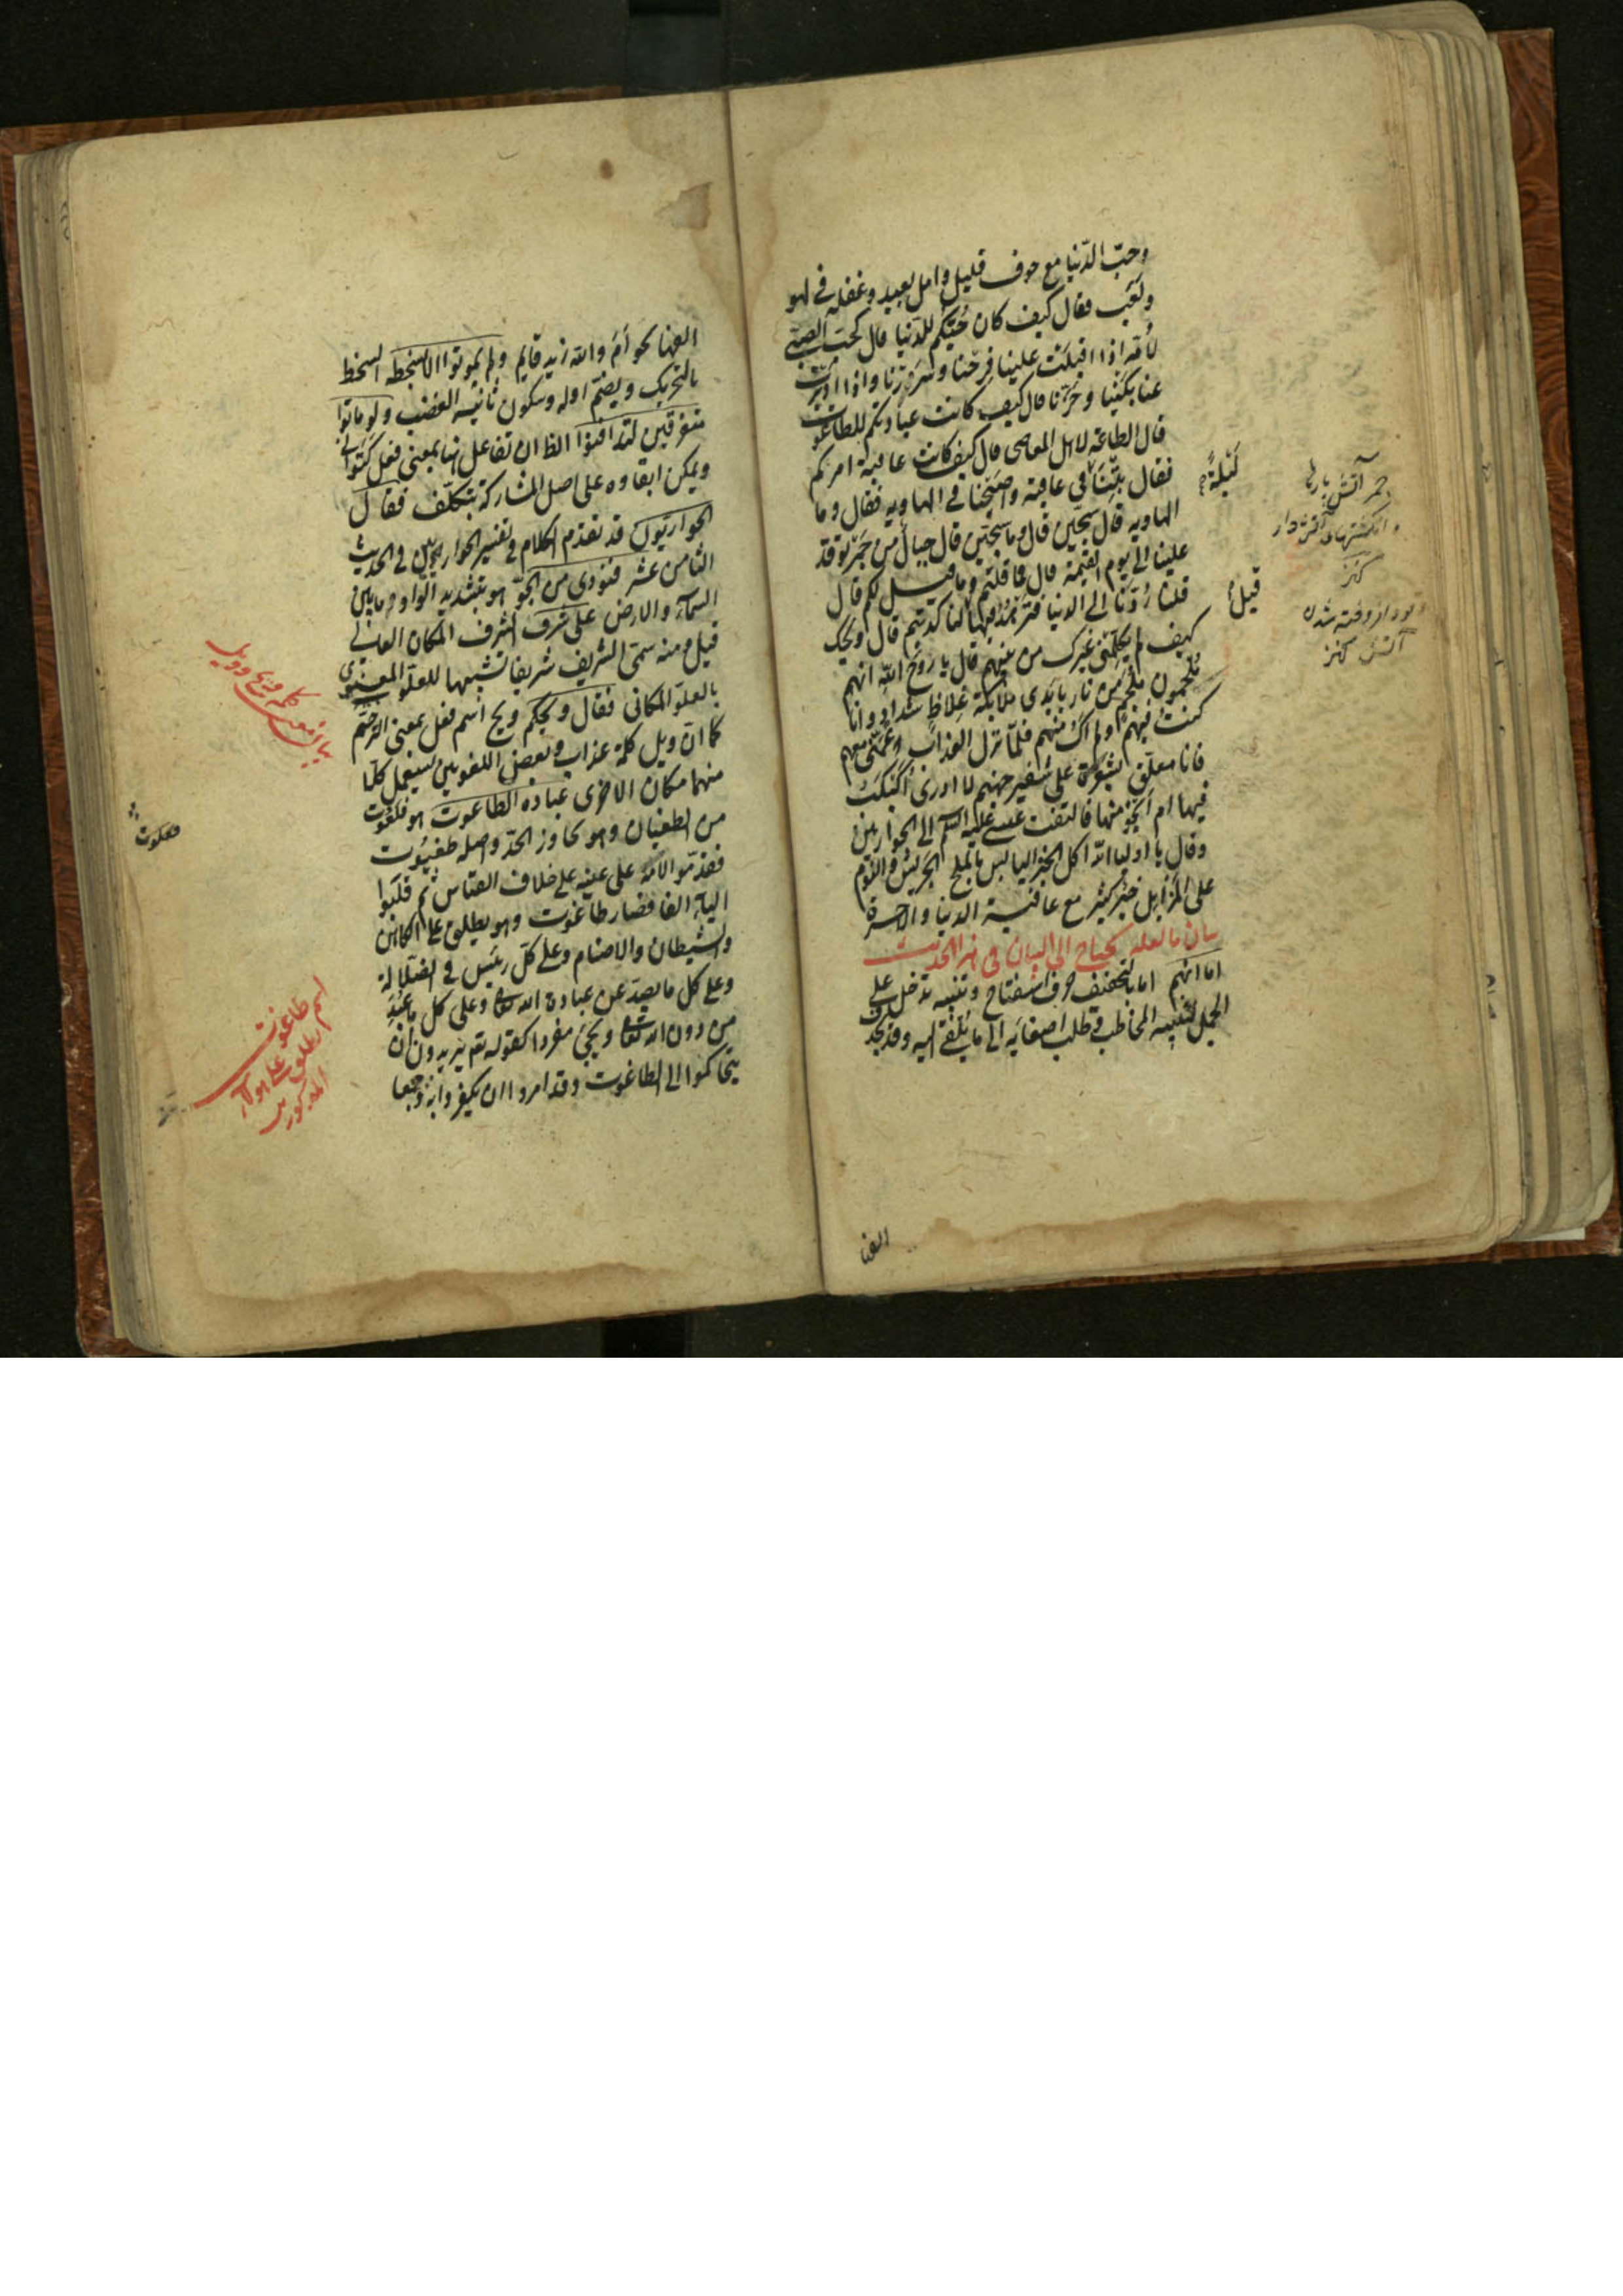 وحبّ الدّنيا مع خوف قليل وامل بعيد وغفلة في لهو
ولعب فقال كيف كان حُبّكم للدّنيا قال كحبّ الصبيّ
لأمّه اذا اقبلت علينا فرحنا وسُررنا واذا ادبرت
عنا بكينا وحزنا قال كيف كانت عبادتكم للطاغوت
قال الطاعة لاهل المعاصى قال كيف كانت عاقبة امركم
فقال بِتنا في عافية واصبحنا في الهاوية فقال وما
الهاوية قال سجّين قال وما سجّين قال جبال من جمر توقد
علينا الى يوم القيمة قال فما قلتم وما قيل لكم قال
قلنا رُدّنا الى الدنيا فنزهد فيها قيل لنا كذبتم قال ويحك
كيف لم يكلّمني غيرك من بينهم قال يا روح الله انهم
مُلجمون بلجم من نار بايدى ملائكة غلاظ شداد وانا
كنت فيهم ولم اك منهم فلمّا نزل العذاب عمّني معهم
فانا معلّق بشعرة على شفير جهنم لا ادرى اُكبكب
فيها ام انجو منها فالتفت عيسى عليه السلم الى الحواريين
وقال يا اولياء الله اكل الخبز اليابس بالملح الجريش والنوم
على المزابل خير كثير مع عافية الدنيا والاخرة
بيان ما لعله يحتاج الى البيان في هذا الحديث
اما انهم اما بالتخفيف حرف استفتاح وتنبيه تدخل على
الجمل لتنبيه المخاطب وطلب اصغائه الى ما يُلقى اليه وقد يحذف
قيل
جمر آتش پاره
آتش
الفها
الفها نحو أمَ والله زيد قايم ولم يموتوا الا بسخطة السخط
بالتحريك وبضمّ اوله وسكون ثانيه الغضب ولو ماتوا
متفرقين لتدافنوا الظ ان تفاعل هنا بمعنى فعل كتوانى
ويمكن ابقاوه على اصل المشاركة بتكلّف فقال
الحواريّون قد تقدم الكلام في تفسير الحواريين في الحديث
الثامن عشر فنودى من الجوّ هو بتشديد الواو ما بين
السمآء والارض على شرف الشرف المكان العالي
قيل ومنه سمّى الشريف شريفا تشبيها للعلوّ المعنوى
بالعلوّ المكانى فقال ويحكم ويح اسم فعل بمعنى الترحم
كما ان ويل كلمة عذاب وبعض اللغويين يستعمل كلّا
منهما مكان الاخرى عبادة الطاغوت هو فلعوت
من الطغيان وهو تجاوز الحدّ واصله طغيوت
فقدّموا لامه على عينه على خلاف القياس ثم قلبوا
اليآء الفا فصار طاغوت وهو يطلق على الكاهن
والشيطان والاصنام وعلى كلّ رئيس في الضلالة
وعلى كل ما يصدّ عن عبادة الله تعالى وعلى كل ما عبد
من دون الله تعالى ويجئ مفردا كقوله تع يريدون ان
يتحاكموا الى الطاغوت وقد امروا ان يكفروا به وجمعا
بيان معنى كلمة ويح وويل
فعلوت
اسم طاغوت
يطلق على هؤلاء
المذكورين